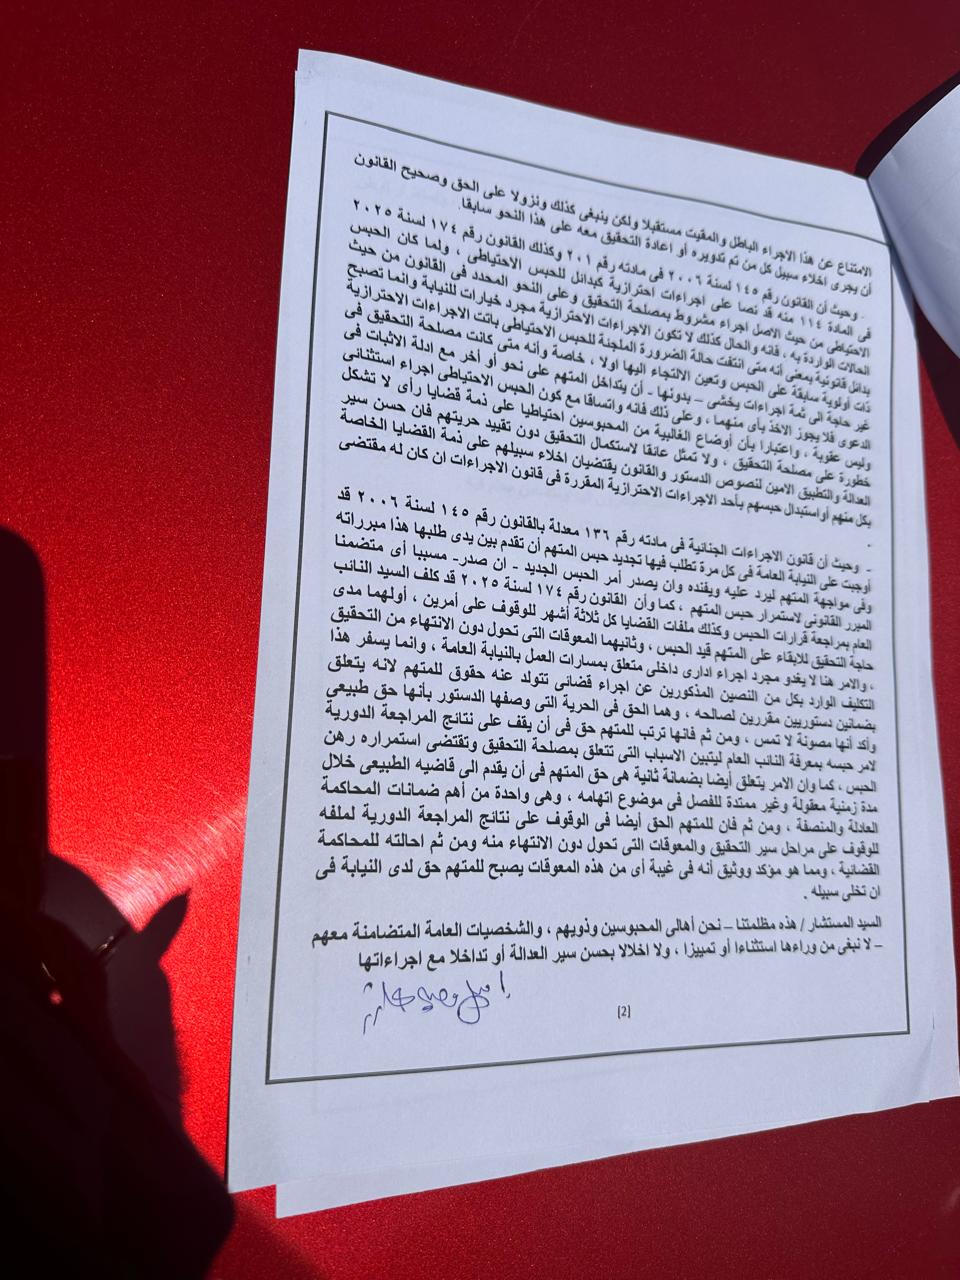 الامتناع عن هذا الاجراء الباطل والمقيت مستقبلا ولكن ينبغى كذلك ونزولا على الحق وصحيح القانون
أن يجرى اخلاء سبيل كل من تم تدويره أو اعادة التحقيق معه على هذا النحو سابقا.
- وحيث أن القانون رقم ١٤٥ لسنة ٢٠٠٦ فى مادته رقم ٢٠١ وكذلك القانون رقم ١٧٤ لسنة ٢٠٢٥
فى المادة ١١٤ منه قد نصا على اجراءات احترازية كبدائل للحبس الاحتياطى ، ولما كان الحبس
الاحتياطى من حيث الاصل اجراء مشروط بمصلحة التحقيق وعلى النحو المحدد فى القانون من حيث
الحالات الواردة به ، فانه والحال كذلك لا تكون الاجراءات الاحترازية مجرد خيارات للنيابة وانما تصبح
بدائل قانونية بمعنى أنه متى انتفت حالة الضرورة الملجئة للحبس الاحتياطى باتت الاجراءات الاحترازية
ذات أولوية سابقة على الحبس وتعين الالتجاء اليها اولا ، خاصة وأنه متى كانت مصلحة التحقيق فى
غير حاجة الى ثمة اجراءات يخشى – بدونها - أن يتداخل المتهم على نحو أو أخر مع ادلة الاثبات فى
الدعوى فلا يجوز الاخذ بأى منهما ، وعلى ذلك فانه واتساقا مع كون الحبس الاحتياطى اجراء استثنائى
وليس عقوبة ، واعتبارا بأن أوضاع الغالبية من المحبوسين احتياطيا على ذمة قضايا رأى لا تشكل
خطورة على مصلحة التحقيق ، ولا تمثل عائقا لاستكمال التحقيق دون تقييد حريتهم فان حسن سير
العدالة والتطبيق الامين لنصوص الدستور والقانون يقتضيان اخلاء سبيلهم على ذمة القضايا الخاصة
بكل منهم أو استبدال حبسهم بأحد الاجراءات الاحترازية المقررة فى قانون الاجراءات ان كان له مقتضى
.
- وحيث أن قانون الاجراءات الجنائية فى مادته رقم ١٣٦ معدلة بالقانون رقم ١٤٥ لسنة ٢٠٠٦ قد
أوجبت على النيابة العامة فى كل مرة تطلب فيها تجديد حبس المتهم أن تقدم بين يدى طلبها هذا مبرراته
وفى مواجهة المتهم ليرد عليه ويفنده وان يصدر أمر الحبس الجديد - ان صدر- مسببا أى متضمنا
المبرر القانونى لاستمرار حبس المتهم ، كما وأن القانون رقم ١٧٤ لسنة ٢٠٢٥ قد كلف السيد النائب
العام بمراجعة قرارات الحبس وكذلك ملفات القضايا كل ثلاثة أشهر للوقوف على أمرين ، أولهما مدى
حاجة التحقيق للابقاء على المتهم قيد الحبس ، وثانيهما المعوقات التى تحول دون الانتهاء من التحقيق
، والامر هنا لا يغدو مجرد اجراء ادارى داخلى متعلق بمسارات العمل بالنيابة العامة ، وانما يسفر هذا
التكليف الوارد بكل من النصين المذكورين عن اجراء قضائى تتولد عنه حقوق للمتهم لانه يتعلق
بضمانين دستوريين مقررين لصالحه ، وهما الحق فى الحرية التى وصفها الدستور بأنها حق طبيعى
وأكد أنها مصونة لا تمس ، ومن ثم فانها ترتب للمتهم حق فى أن يقف على نتائج المراجعة الدورية
لامر حبسه بمعرفة النائب العام ليتبين الاسباب التى تتعلق بمصلحة التحقيق وتقتضى استمراره رهن
الحبس ، كما وان الامر يتعلق أيضا بضمانة ثانية هى حق المتهم فى أن يقدم الى قاضيه الطبيعى خلال
مدة زمنية معقولة وغير ممتدة للفصل فى موضوع اتهامه ، وهى واحدة من أهم ضمانات المحاكمة
العادلة والمنصفة ، ومن ثم فان للمتهم الحق أيضا فى الوقوف على نتائج المراجعة الدورية لملفه
للوقوف على مراحل سير التحقيق والمعوقات التى تحول دون الانتهاء منه ومن ثم احالته للمحاكمة
القضائية ، ومما هو مؤكد ووثيق أنه فى غيبة أى من هذه المعوقات يصبح للمتهم حق لدى النيابة فى
ان تخلى سبيله .
السيد المستشار / هذه مظلمتنا – نحن أهالى المحبوسين وذويهم ، والشخصيات العامة المتضامنة معهم
– لا نبغى من وراءها استثناءا أو تمييزا ، ولا اخلالا بحسن سير العدالة أو تداخلا مع اجراءاتها
[2]